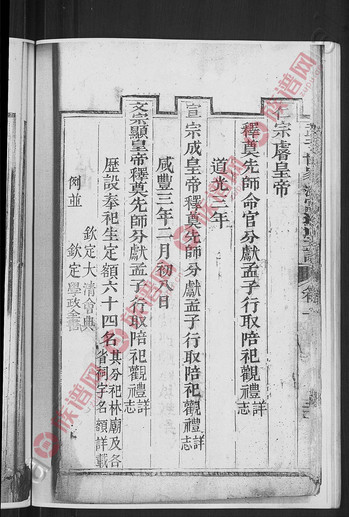 仁宗睿皇帝
釋奠先師命官分獻孟子行取陪祀觀禮詳志
道光三年
宣宗成皇帝釋奠先師分獻孟子行取陪祀觀禮詳志
咸豐三年二月初八日
文宗顯皇帝釋奠先師分獻孟子行取陪祀觀禮詳志
歷設奉祀生定額六十四名其分祀林廟及各省祠字名額詳載
欽定大清會典
例並
欽定學政全書
族谱网